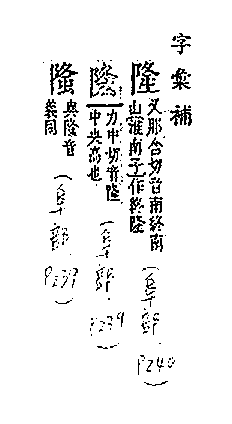 字彙補
隆
又那含切音南終南
山淮南子作終隆
(阜部 P240)
力中切音隆
中央高也
(阜部 P239)
與隆音
義同
(阜部